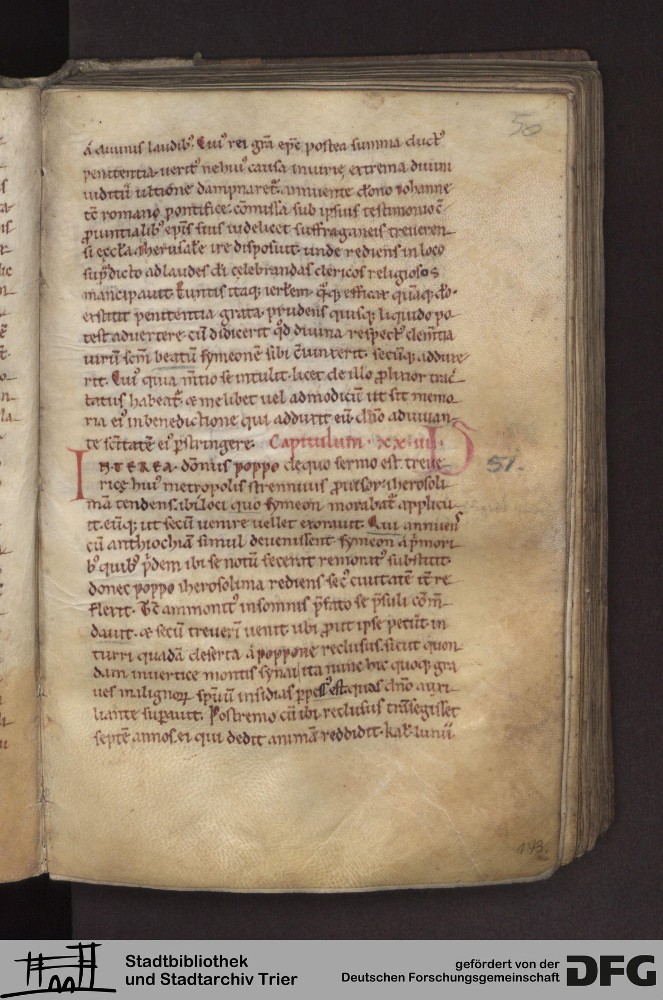 50
a diuinis laudib;. Cui' rei gr̄a ep̄c postea summa duct'
penitentia. uerit' ne hui' causa iniurie, extrema diuini
iuditii ultione dampnaret'. annuente dōno iohanne
tc̄ romano pontifice. cōmissa sub ipsius testimonio
ꝓuintialib' ep̄is suis uidelicet suffraganeis treueren
si ęccl̄a. iherusalē ire disposuit. unde rediens in loco
sup̄dicto ad laudes celebrandas clericos religiosos
mancipauit. Euntis itaq; ierl̄em. q̄q; efficax quāq; dō
extitit penitentia grata. prudens quisq; liquido po
test aduertere. cū didicerit qd̄ diuina respect' clem̄tia
uirū sc̄m beatū symeonē sibi ꝯiunxerit. secūq; adduxe
rit. Cui' quia m̄tio se intulit. licet de illo ꝓlixior trac
tatus habeat'. & me libet uel ad modicū ut sit memo
ria ei' in benedictione qui adduxit eū. dn̄o adiuuan
te sc̄itatē ei' p̄stringere. Capitulum. xx
INTEREA. domn̄us poppo de quo sermo est. treue
51.
ricę hui' metropolis strennuus ꝓuisor. iherosoli
mā tendens. ibi loci quo symeon morabat' applicu
it. eūq; ut secū uenire uellet exorauit. Qui annuens
cū anthiochiā simul deuenissent. symeon a p̄mori
b' quib' p̄dem ibi se notū fecerat remorat' substitit.
donec poppo iherosolima rediens sec' ciuitatē
flexit. Tc̄ ammonit' in somnis p̄fato se p̄suli cōm̄
dauit. & secū treueri uenit. ubi ꝓut ipse petiit. in
turri quadā deserta a poppone reclusus. sicut quon
dam in uertice montis synai, ita nunc hic quoq; gra
ues malignoꝝ sp̄uū insidias ꝑpessus est. quas dn̄o auxi
liante supauit. Postremo cū ibi reclusus trāsegisset
septē annos. ei qui dedit animā reddidit. kal̄. iunii
143.
Stadtbibliothek
und Stadtarchiv Trier
gefördert von der
Deutschen Forschungsgemeinschaft
DFG